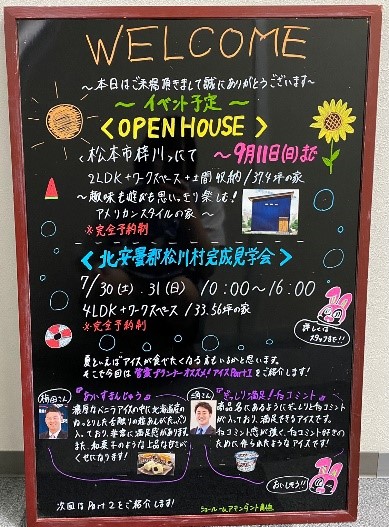 WELCOME
～本日はご来場頂きまして誠にありがとうございます～
～イベント予定～
＜OPEN HOUSE＞
＜松本市梓川＞にて ～9月11日(日)まで
2LDK＋ワークスペース＋土間収納/37.4坪の家
～趣味も遊びも思いっきり楽しむ!
アメリカンスタイルの家～
※完全予約制
＜北安曇郡松川村完成見学会＞
7/30(土).31(日) 10:00～16:00
4LDK＋ワークスペース/33.56坪の家
※完全予約制
詳しくは
スタッフまで!!
夏といえばアイスが食べたくなる方もいるかと思います。
そこで今回は営業・プランナーオススメ!アイスPart1をご紹介します!
あいすまんじゅう
濃厚なバニラアイスの中に北海道産の
ねっとりした舌触りの餡あんがたっぷり
入っており、非常に満足感があります。
また、和菓子のような上品な甘さが
くせになります!
ぎっしり満足!チョコミント
商品名にあるようにぎっしりとチョコミント
が入っており、満足できるアイスです。
チョコミント感が強く、チョコミント好きの
ために作られたようなアイスです!
おいしそう!!
次回はPart2をご紹介します!
ショールームアテンダント